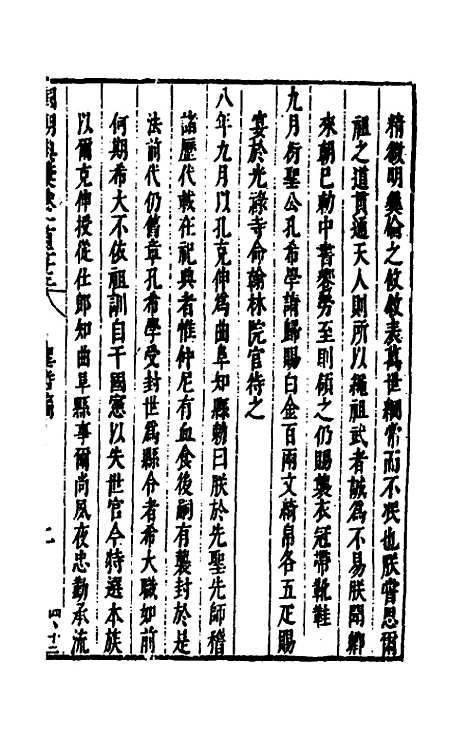 精微明彝倫之攸敘表萬世綱常而不泯也朕嘗思爾
祖之道貫通天人則所以繩祖武者誠為不易朕聞卿
來朝已勅中書饗勞至則領之仍賜襲衣冠帶靴鞋
九月衍聖公孔希學請歸賜白金百兩文綺帛各五疋賜
宴於光祿寺命翰林院官待之
八年九月以孔克伸為曲阜知縣勅曰朕於先聖先師稽
諸歷代載在祀典者惟仲尼有血食後嗣有襲封於是
法前代仍舊章孔希學受封世為縣令者希大職如前
何期希大不依祖訓自干國憲以失世官今特選本族
以爾克伸授從仕郎知曲阜縣事爾尚夙夜忠勤承流